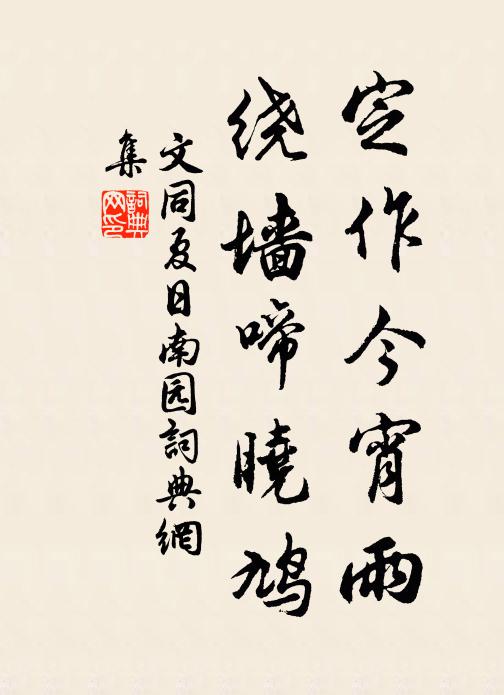 定作今宵雨
绕墙啼曉鸠
文同夏日南园詞典網
集
詞典网印